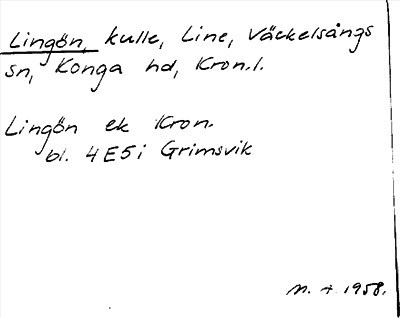 Lingön, kulle, Line, Väckelsångs
sn, Konga hd, Kron.l.
Lingön ek Kron.
bl. 4E5i Grimsvik
1958.